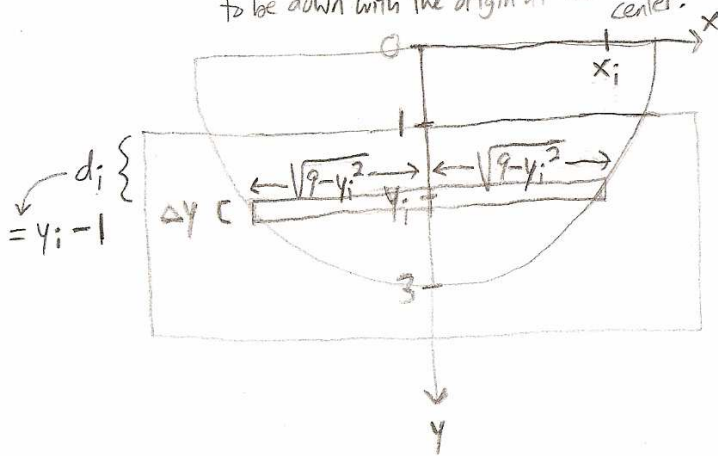 to be down with the origin at center.
0 x
x_i
1
d_i {
= y_i - 1
√9-y_i² √9-y_i²
Δy [ y_i
3
y